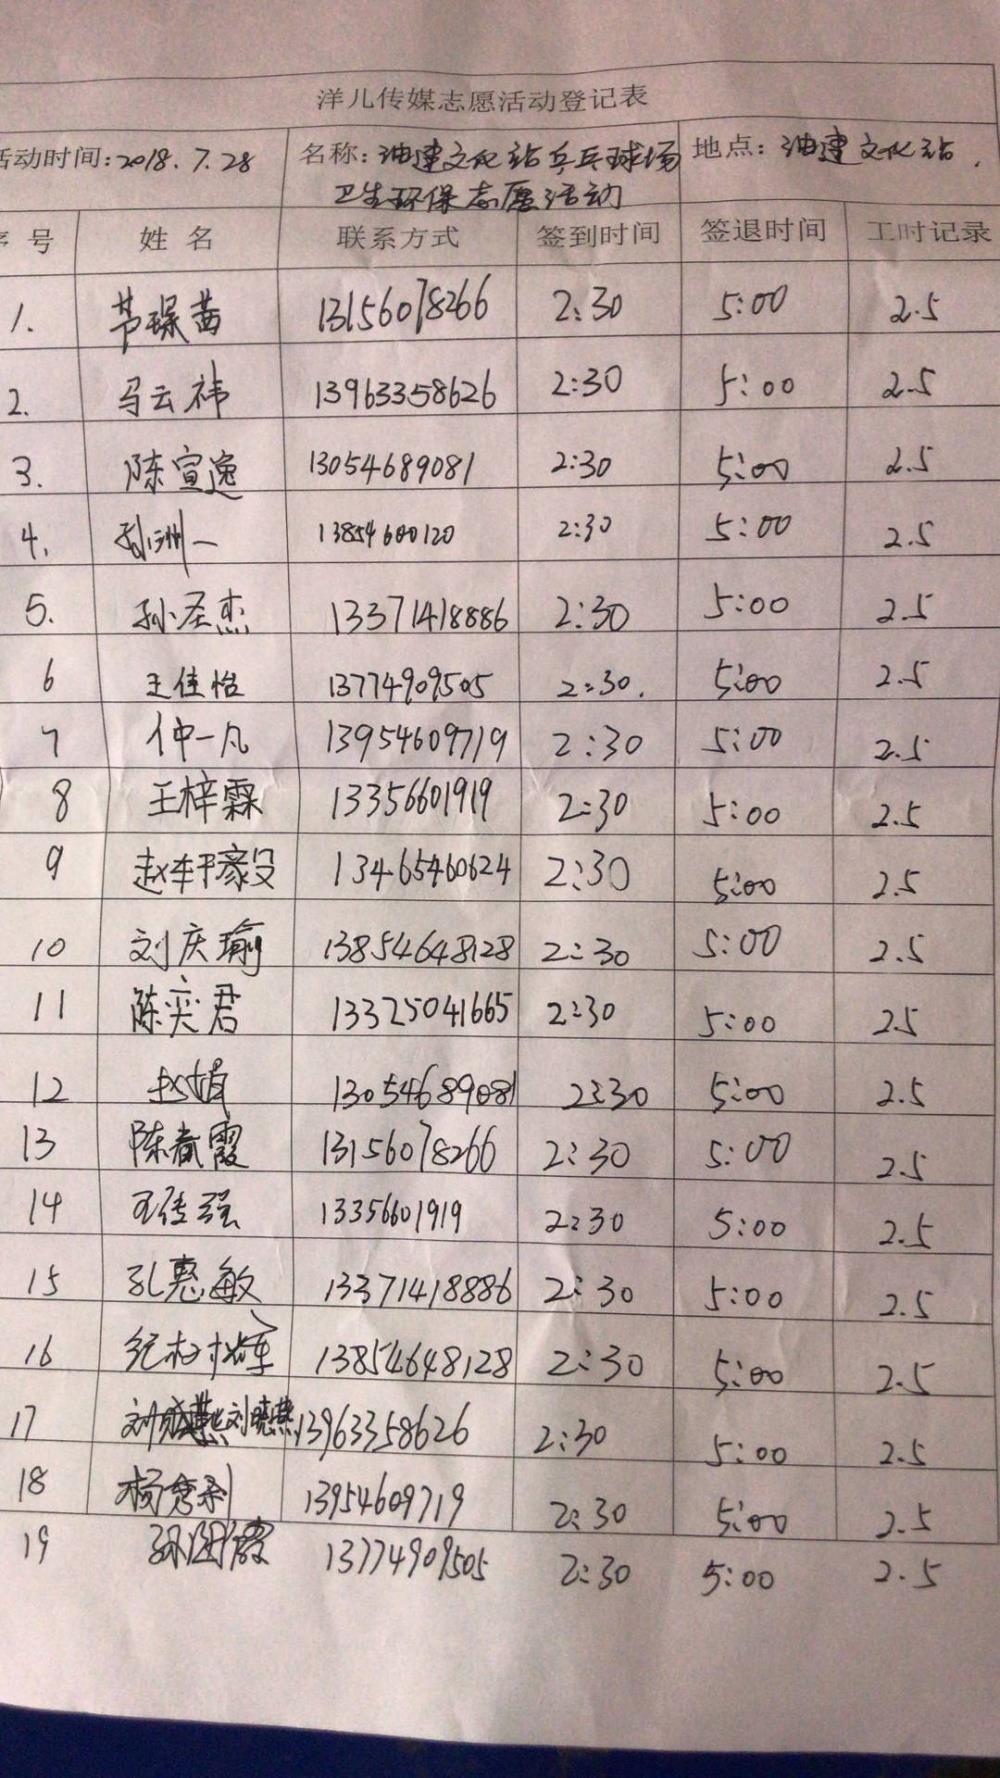 洋儿传媒志愿活动登记表
活动时间:2018.7.28 名称:油建文化站乒乓球场 地点:油建文化站.
卫生环保志愿活动
序号 姓名 联系方式 签到时间 签退时间 工时记录
1. 13156078266 2:30 5:00 2.5
2. 马云祎 13963358626 2:30 5:00 2.5
3. 陈宣逸 13054689081 2:30 5:00 2.5
4. 孙洲一 13854600120 2:30 5:00 2.5
5. 孙圣杰 13371418886 2:30 5:00 2.5
6 王佳怡 13774909505 2:30. 5:00 2.5
7 仲一凡 13954609719 2:30 5:00 2.5
8 王梓霖 13356601919 2:30 5:00 2.5
9 赵轩毅 13465460624 2:30 5:00 2.5
10 刘庆瑜 13854648128 2:30 5:00 2.5
11 陈奕君 13325041665 2:30 5:00 2.5
12 赵婧 13054689081 2:30 5:00 2.5
13 陈春霞 13156078266 2:30 5:00 2.5
14 王传强 13356601919 2:30 5:00 2.5
15 孔惠敏 13371418886 2:30 5:00 2.5
16 13854648128 2:30 5:00 2.5
17 刘晓燕 13963358626 2:30 5:00 2.5
18 13954609719 2:30 5:00 2.5
19 13774909505 2:30 5:00 2.5